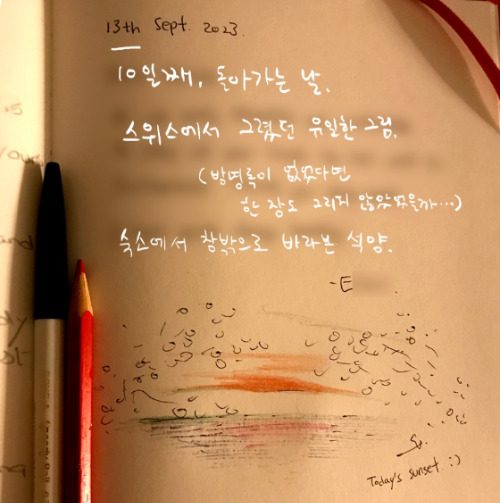 13th Sept. 2023.
10일째, 돌아가는 날.
스위스에서 그렸던 유일한 그림.
(방명록이 없었다면
한 장도 그리지 않았었을까...)
숙소에서 창밖으로 바라본 석양.
-E
Today's sunset :)